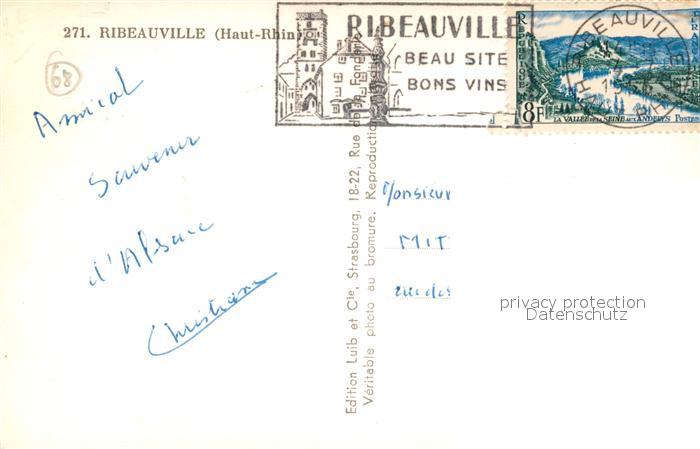 271. RIBEAUVILLE (Haut-Rhin)
68
RIBEAUVILLE
BEAU SITE
BONS VINS
BEAUVILLE
8F
LA VALLÉE DE LA SEINE AUX ANDELYS POSTES
Amical
Souvenir
d'Alsace
Christiane
Edition Luib et Cie, Strasbourg, 18-22, Rue de la
Véritable photo au bromure. Reproduction
Monsieur
MIT
privacy protection
Datenschutz